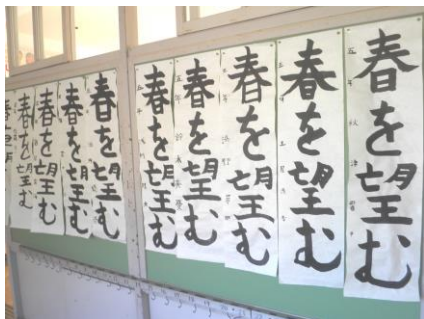 春を望む
五年
春を望む
春を望む
春を望む
五年
春を望む
五年
春を望む
春を望む
春を望む
春を望む